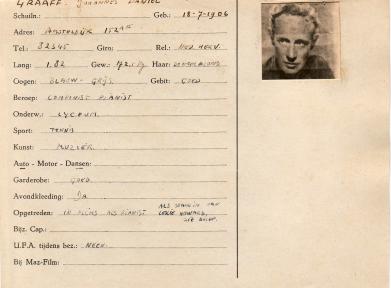 GRAAFF. JOHANNES DANIEL
Schuiln.: Geb.: 18-7-1906
Adres: AMSTELDIJK
Tel.: 32545 Giro: Rel.: NED HERV.
Lang: 1.82 Gew.: 72 Kg Haar: DONKERBLOND
Oogen: BLAUW-GRIJS Gebit: GOED
Beroep: COMPONIST PIANIST
Onderw.: LYCEUM
Sport: TENNIS
Kunst: MUZIEK
Auto - Motor - Dansen:
Garderobe: GOED
Avondkleeding: JA
Opgetreden: IN FILMS ALS PIANIST
ALS VAN
LESLIE HOWARD,
ZIE
Bijz. Cap.:
U.F.A. tijdens bez.: NEEN
Bij Maz-Film: